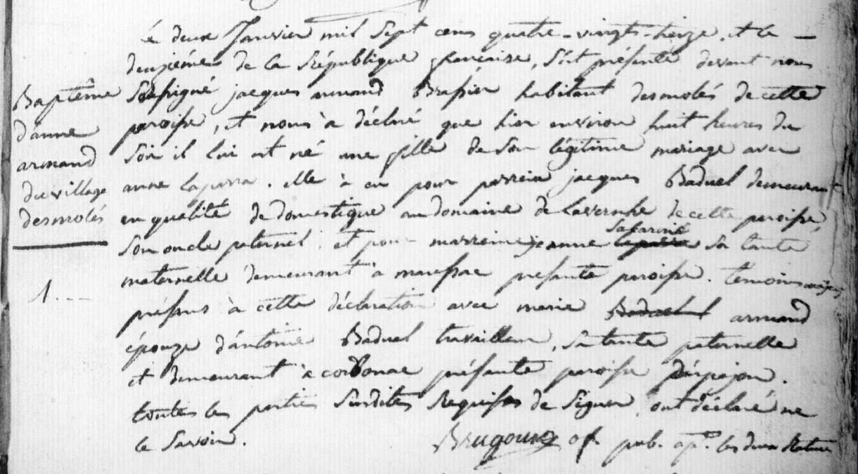 Baptême
d'anne
armand
du village
desmolés
1.
Le deux Janvier mil Sept cens quatre-vingt-treize, et le
deuzième de la République françaíse, S'est présenté devant nous
Soussigné jacques armand Brassier habitant desmolés de cette
paroisse, et nous à déclaré que hier environ huit heures du
Soir il lui est né une fille de Son légitime mariage avec
anne laparra. elle à eu pour parrein jacques Baduel demeurant
en qualité de domestique au domaine de de cette paroisse,
Son oncle paternel; et pour marreine jeanne Sa tante
maternelle demeurant à présante paroisse. temoins
présens à cette déclaration avec marie armand
épouze d'antoine Baduel travailleur, Sa tante paternelle
et demeurant à présante paroisse d'arpajon.
toutes les parties Susdites Requises de Signer, ont déclaré ne
le Savoir. Brugoux of pub.